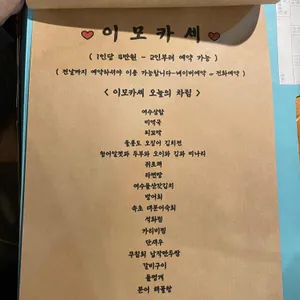 이모카세
( 1인당 5만원 - 2인부터 예약 가능 )
( 전날까지 예약하셔야 이용 가능합니다-네이버예약 = 전화예약 )
< 이모카세 오늘의 차림 >
여수삼합
미역국
회꼬막
울릉도 오징어 김치전
청어알젓과 두부와 오이와 김과 미나리
취토핵
라면땅
여수돌산갓김치
방어회
속초 대문어숙회
석화찜
가리비찜
단새우
부침회 납작만두쌈
갈비구이
돌멍게
문어 해물탕